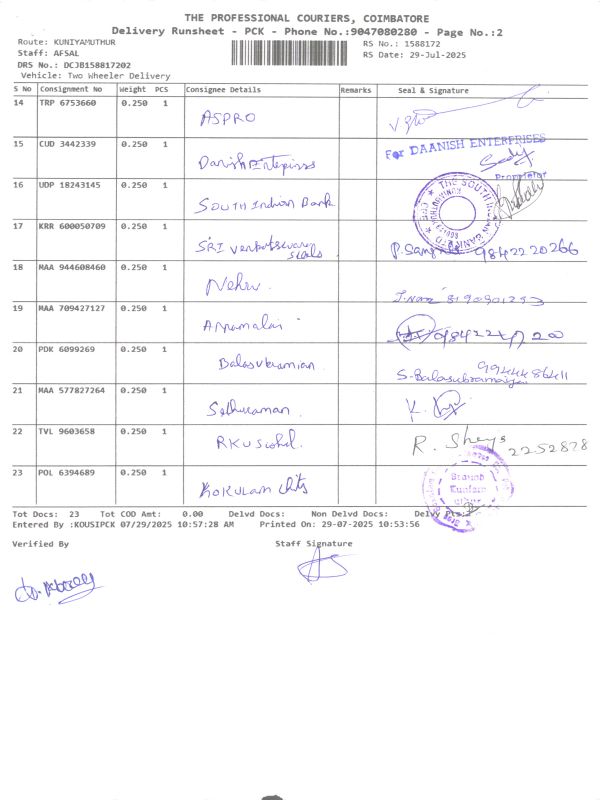 THE PROFESSIONAL COURIERS, COIMBATORE
Delivery Runsheet - PCK - Phone No.:9047080280 - Page No.:2
Route: KUNIYAMUTHUR RS No.: 1588172
Staff: AFSAL RS Date: 29-Jul-2025
DRS No.: DCJB158817202
Vehicle: Two Wheeler Delivery
S No Consignment No Weight PCS Consignee Details Remarks Seal & Signature
14 TRP 6753660 0.250 1 ASPRO
15 CUD 3442339 0.250 1 Danish Enterpisses For DAANISH ENTERPRISES
Proprietor
16 UDP 18243145 0.250 1 South Indian Bank THE SOUTH INDIAN BANK LTD
17 KRR 600050709 0.250 1 SRI 9842220266
18 MAA 944608460 0.250 1 Nehru 8190901253
19 MAA 709427127 0.250 1 Annamalai
20 PDK 6099269 0.250 1 Balasubramian S. Balasubramaniyan
21 MAA 577827264 0.250 1 Sethuraman K.
22 TVL 9603658 0.250 1 RKU R. 2252878
23 POL 6394689 0.250 1 KOKULAM chits
Tot Docs: 23 Tot COD Amt: 0.00 Delvd Docs: Non Delvd Docs: Delvy Pts:
Entered By :KOUSIPCK 07/29/2025 10:57:28 AM Printed On: 29-07-2025 10:53:56
Verified By Staff Signature